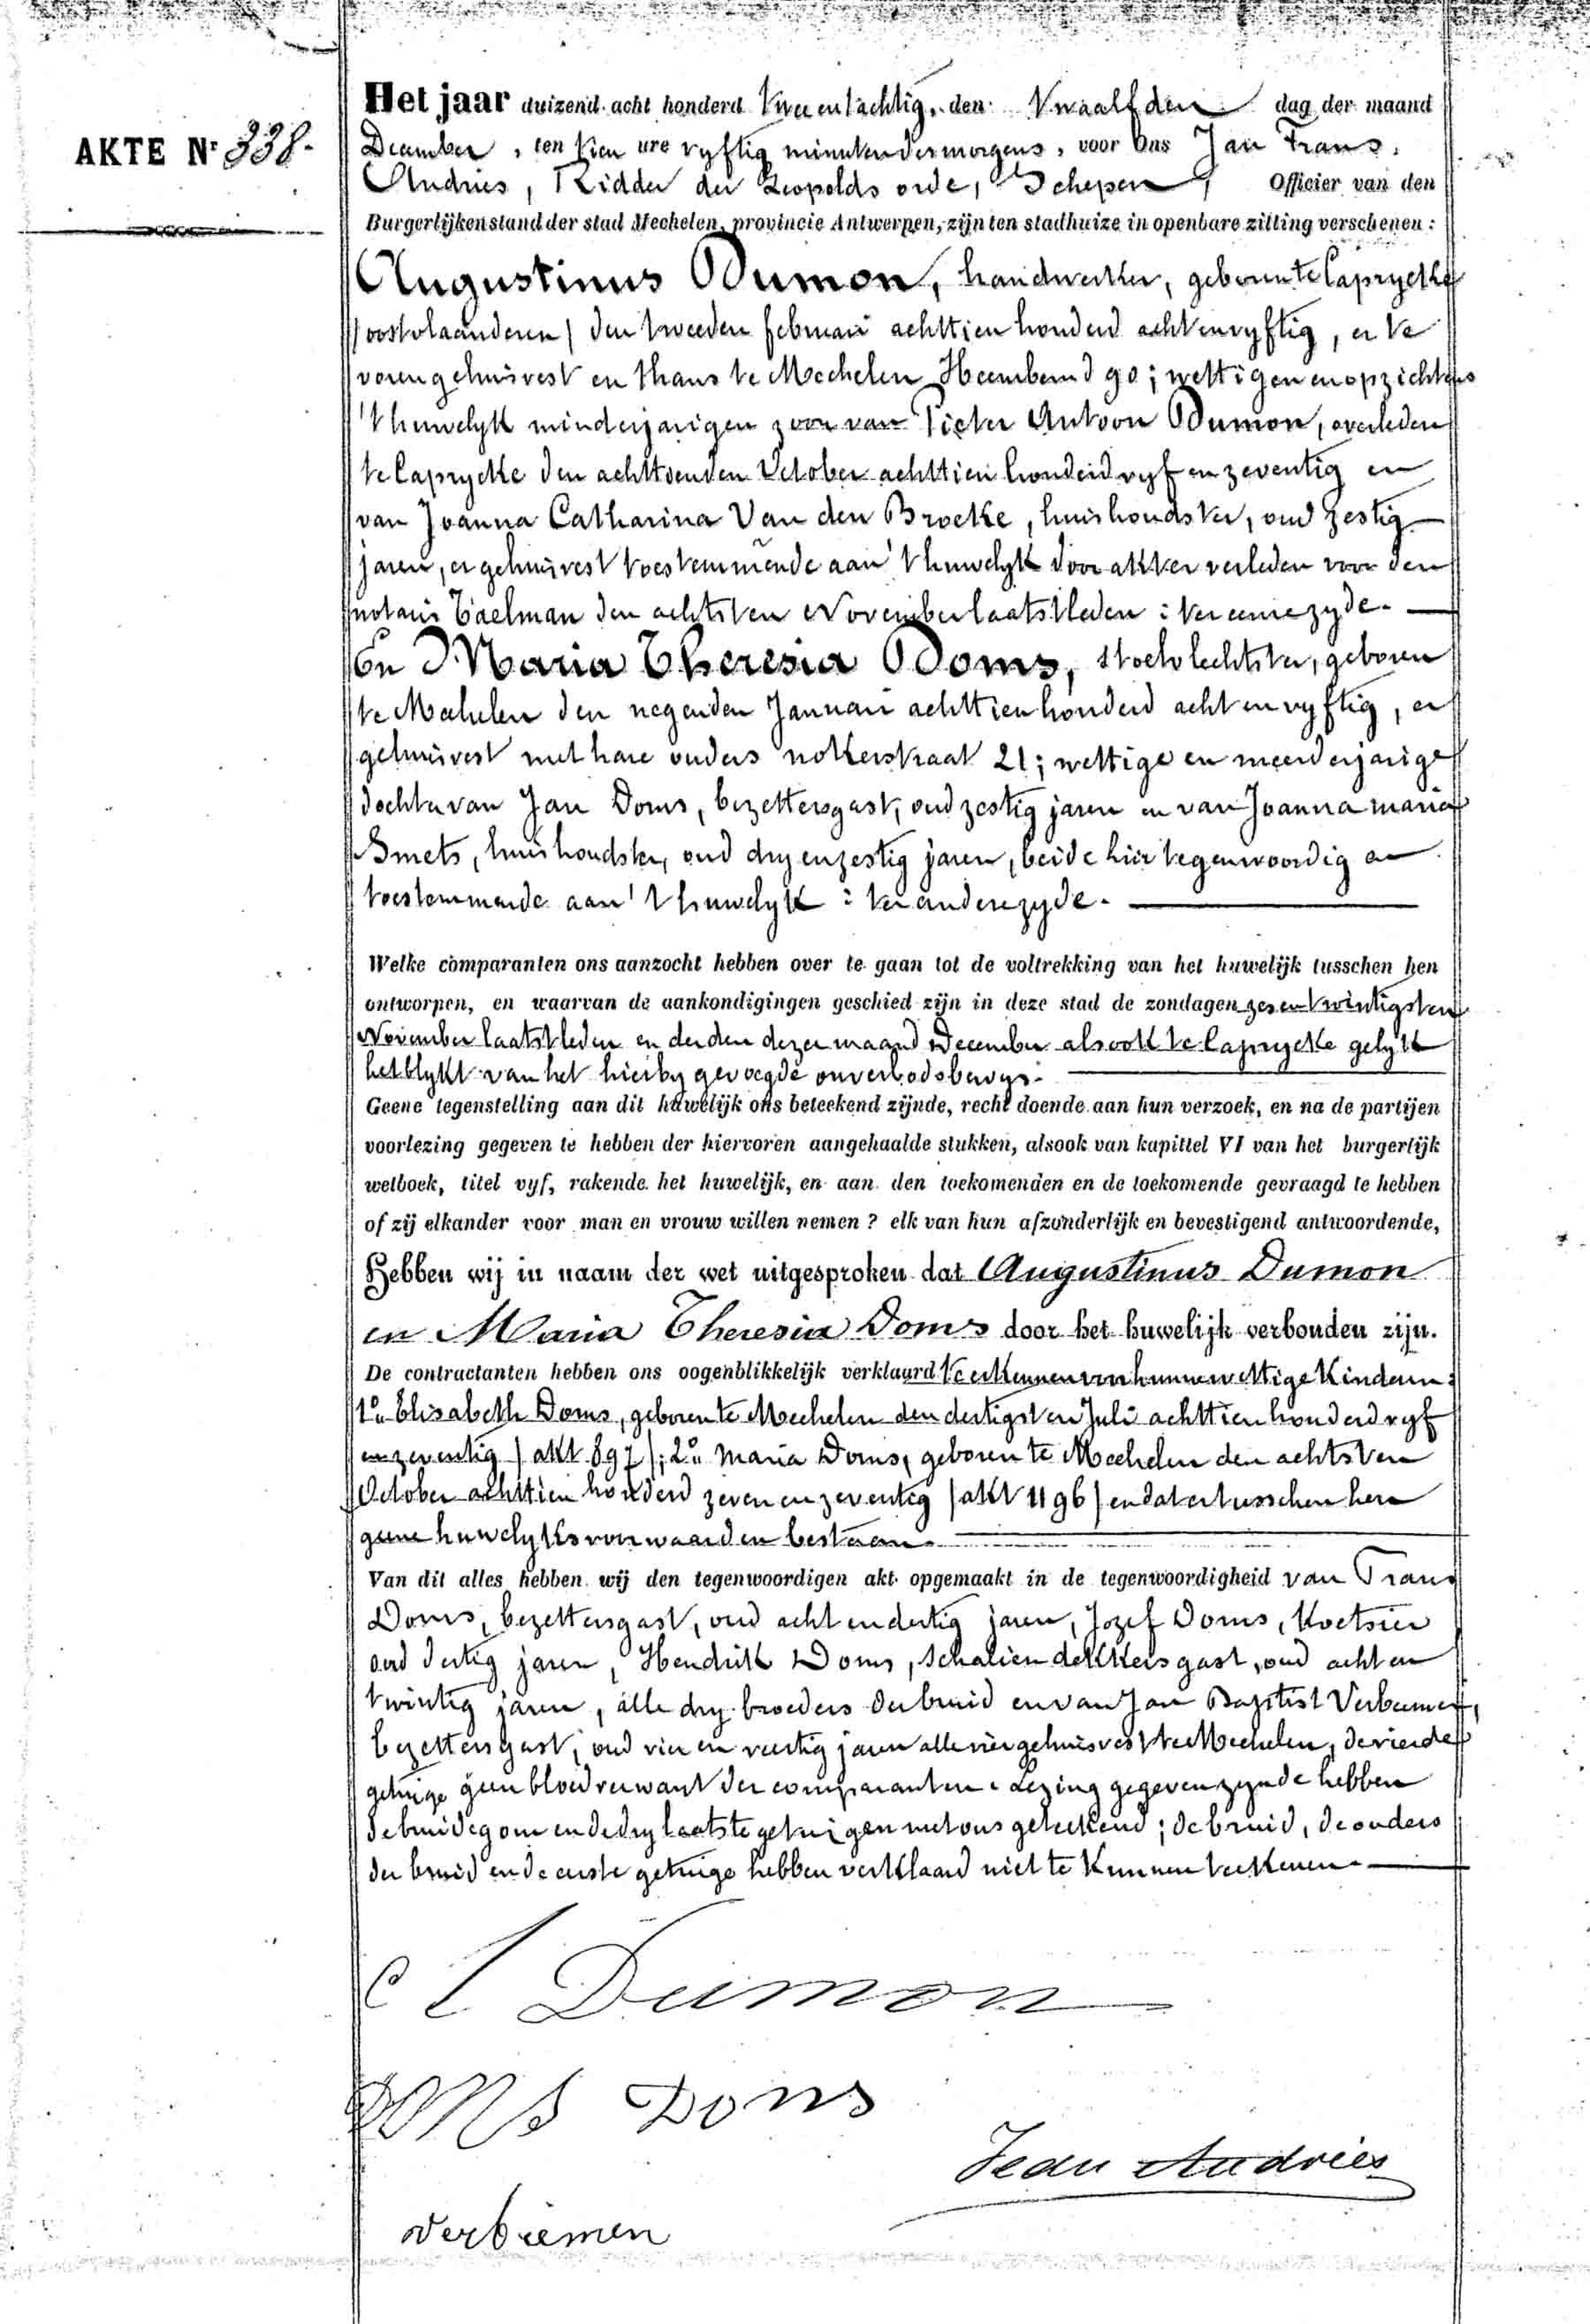 AKTE Nr 338.
Het jaar duizend acht honderd twee en tachtig, den twaalfden dag der maand
December, ten tien ure vyftig minuten des morgens, voor Ons Jan Frans
Andries, Ridder der Leopolds orde, Schepen, Officier van den
Burgerlijkenstand der stad Mechelen, provincie Antwerpen, zijn ten stadhuize in openbare zitting verschenen :
Augustinus Dumon, handwerker, geboren te Caprycke
/oostvlaanderen/ den tweeden februari achttien honderd achtenvyftig, er te
voren gehuisvest en thans te Mechelen Heembemd 90; wettigen en opzichtens
't huwelyk minderjarigen zoon van Pieter Antoon Dumon, overleden
te Caprycke den achttienden October achttien honderd vyf en zeventig en
van Joanna Catharina Van den Broecke, huishoudster, oud zestig
jaren, er gehuisvest toestemmende aan 't huwelyk door akt er verleden voor den
notaris Taelman den achtsten November laatstleden : ter eenre zyde.
En Maria Theresia Doms, stoelvlechtster, geboren
te Mechelen den negenden Januari achttien honderd acht en vyftig, er
gehuisvest met hare ouders nokerstraat 21; wettige en meerderjarige
dochter van Jan Doms, bezettersgast, oud zestig jaren en van Joanna maria
Smets, huishoudster, oud dry en zestig jaren, beide hier tegenwoordig en
toestemmende aan 't huwelyk : ter andere zyde.
Welke comparanten ons aanzocht hebben over te gaan tot de voltrekking van het huwelijk tusschen hen
ontworpen, en waarvan de aankondigingen geschied zijn in deze stad de zondagen zes en twintigsten
November laatstleden en derden dezer maand December alsook te Caprycke gelyk
het blykt van het hierby gevoegde onverbodsbewys.
Geene tegenstelling aan dit huwelijk ons beteekend zijnde, recht doende aan hun verzoek, en na de partijen
voorlezing gegeven te hebben der hiervoren aangehaalde stukken, alsook van kapittel VI van het burgerlijk
wetboek, titel vyf, rakende het huwelijk, en aan den toekomenden en de toekomende gevraagd te hebben
of zij elkander voor man en vrouw willen nemen ? elk van hun afzonderlijk en bevestigend antwoordende,
Hebben wij in naam der wet uitgesproken dat Augustinus Dumon
en Maria Theresia Doms door het huwelijk verbonden zijn.
De contractanten hebben ons oogenblikkelijk verklaard te erkennen voor hunne wettige Kinderen :
1° Elisabeth Doms, geboren te Mechelen den dertigsten Juli achttien honderd vyf
en zeventig /akt 897/; 2° Maria Doms, geboren te Mechelen den achtsten
October achttien honderd zeven en zeventig /akt 1196/ en dat er tusschen hen
geene huwelyksvoorwaarden bestaan.
Van dit alles hebben wij den tegenwoordigen akt opgemaakt in de tegenwoordigheid van Frans
Doms, bezettersgast, oud acht en dertig jaren, Jozef Doms, Koetsier
oud dertig jaren, Hendrik Doms, schaliendekkersgast, oud acht en
twintig jaren, alle dry broeders der bruid en van Jan Baptist Verbeemen,
bezettersgast, oud vier en veertig jaren alle vier gehuisvest te Mechelen, de vierde
getuige geen bloedverwant der comparanten. Lezing gegeven zynde hebben
de bruidegom en de dry laatste getuigen met ons geteekend; de bruid, de ouders
der bruid en de eerste getuige hebben verklaard niet te kunnen teekenen.
Dumon
DOMS Doms
Jean Andries
Verbiemen